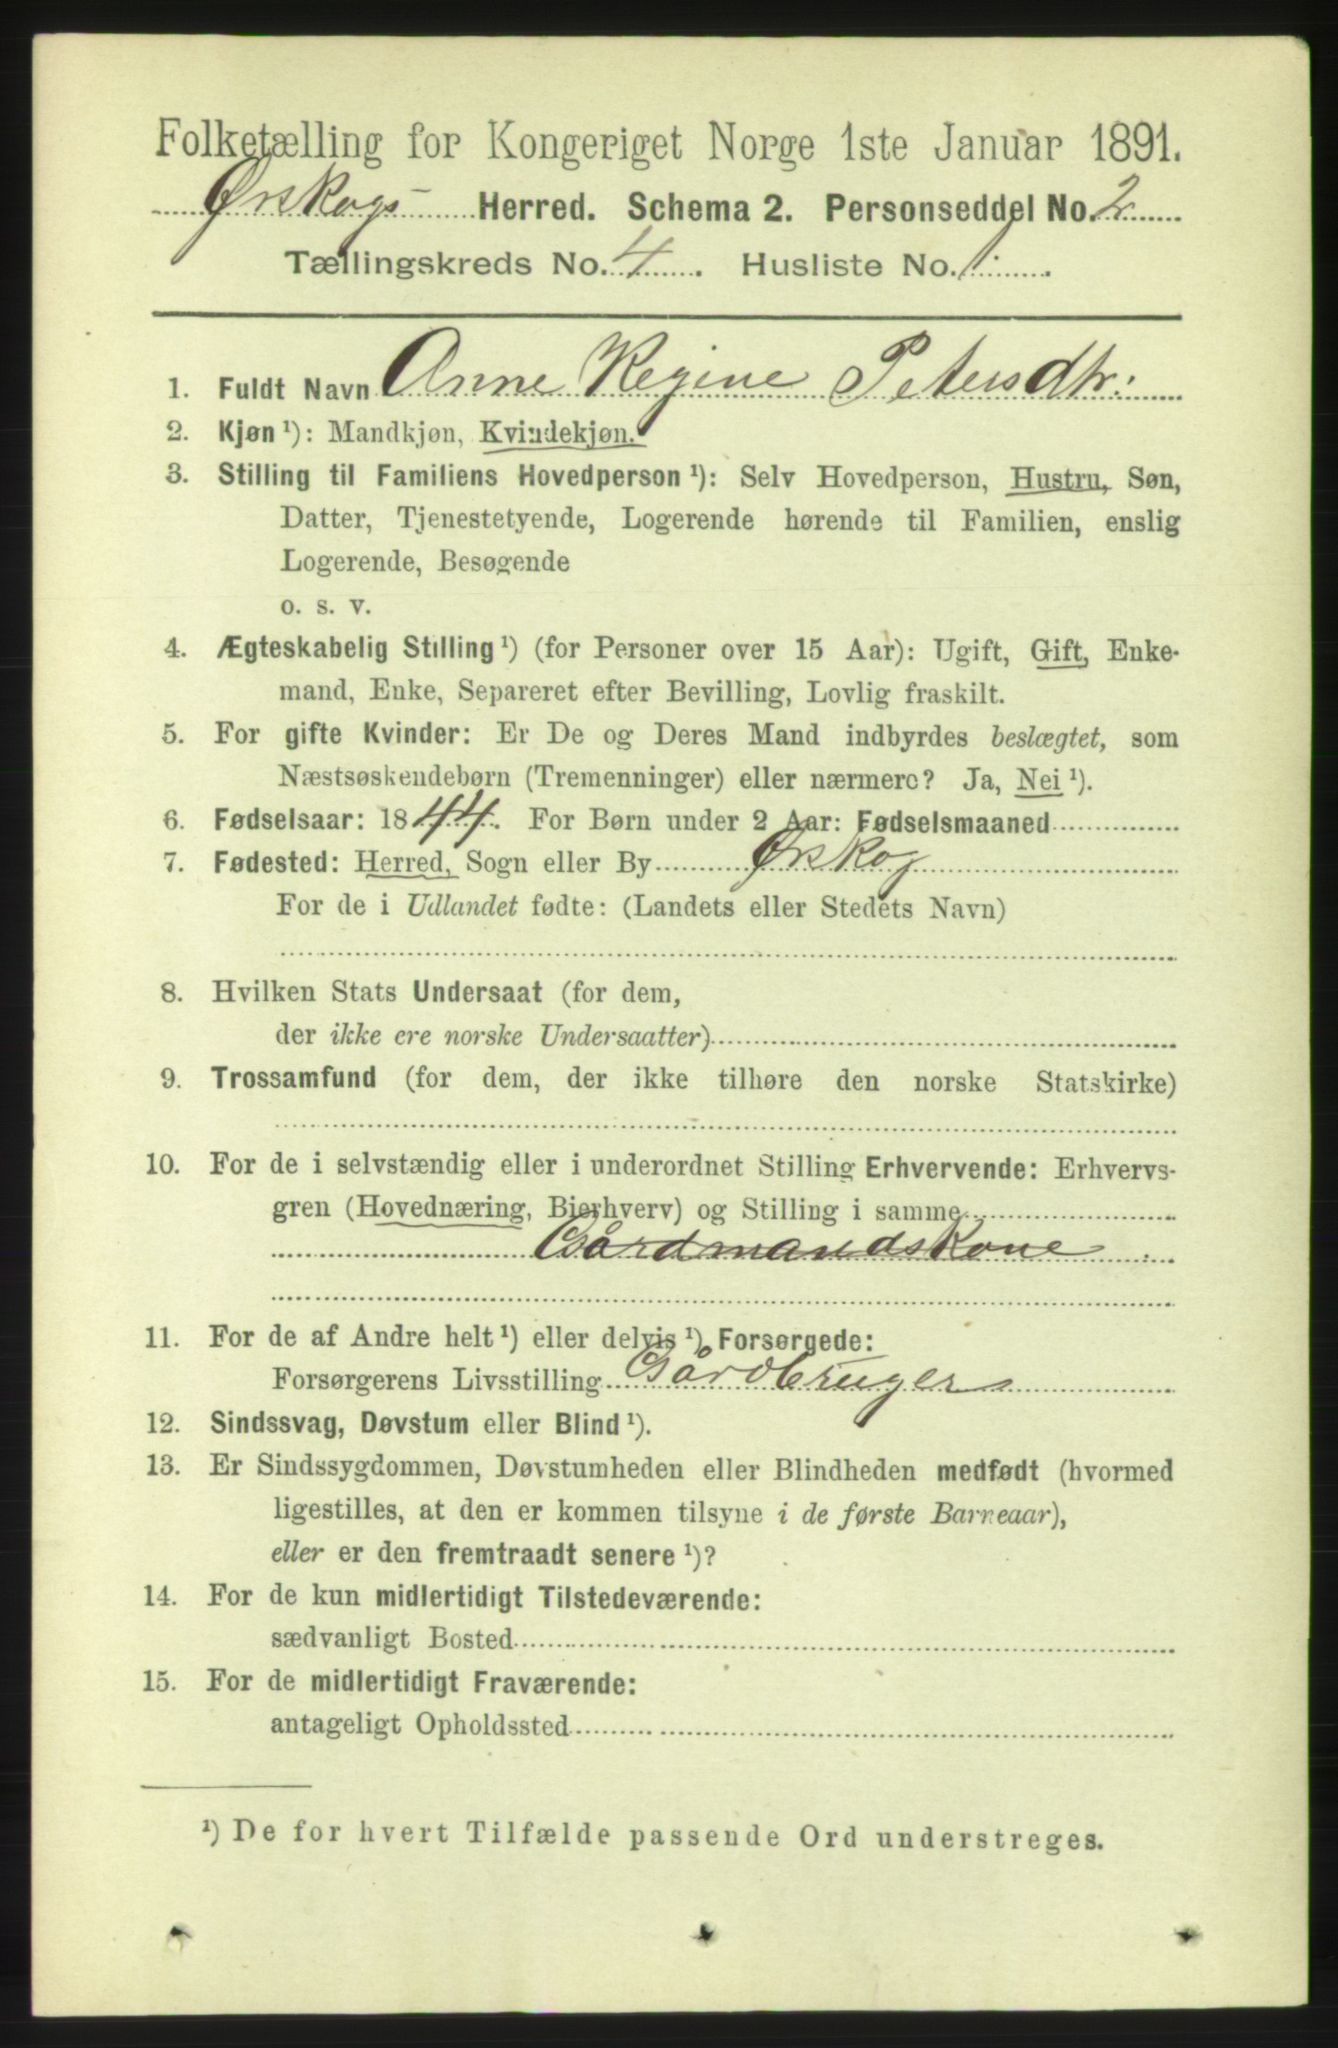 Folketælling for Kongeriget Norge 1ste Januar 1891.
Ørskogs Herred. Schema 2. Personseddel No. 2
Tællingskreds No. 4. Husliste No. 1.
1. Fuldt Navn Anne Regine Petersdtr:
2. Kjøn ¹): Mandkjøn, Kvindekjøn.
3. Stilling til Familiens Hovedperson ¹): Selv Hovedperson, Hustru, Søn,
Datter, Tjenestetyende, Logerende hørende til Familien, enslig
Logerende, Besøgende
o. s. v.
4. Ægteskabelig Stilling ¹) (for Personer over 15 Aar): Ugift, Gift, Enke-
mand, Enke, Separeret efter Bevilling, Lovlig fraskilt.
5. For gifte Kvinder: Er De og Deres Mand indbyrdes beslægtet, som
Næstsøskendebørn (Tremenninger) eller nærmere? Ja, Nei ¹).
6. Fødselsaar: 1844. For Børn under 2 Aar: Fødselsmaaned
7. Fødested: Herred, Sogn eller By Ørskog
For de i Udlandet fødte: (Landets eller Stedets Navn)
8. Hvilken Stats Undersaat (for dem,
der ikke ere norske Undersaatter)
9. Trossamfund (for dem, der ikke tilhøre den norske Statskirke)
10. For de i selvstændig eller i underordnet Stilling Erhvervende: Erhvervs-
gren (Hovednæring, Bierhverv) og Stilling i samme
Gårdmandskone
11. For de af Andre helt ¹) eller delvis ¹) Forsørgede:
Forsørgerens Livsstilling Gårdbruger
12. Sindssvag, Døvstum eller Blind ¹).
13. Er Sindssygdommen, Døvstumheden eller Blindheden medfødt (hvormed
ligestilles, at den er kommen tilsyne i de første Barneaar),
eller er den fremtraadt senere ¹)?
14. For de kun midlertidigt Tilstedeværende:
sædvanligt Bosted
15. For de midlertidigt Fraværende:
antageligt Opholdssted
¹) De for hvert Tilfælde passende Ord understreges.